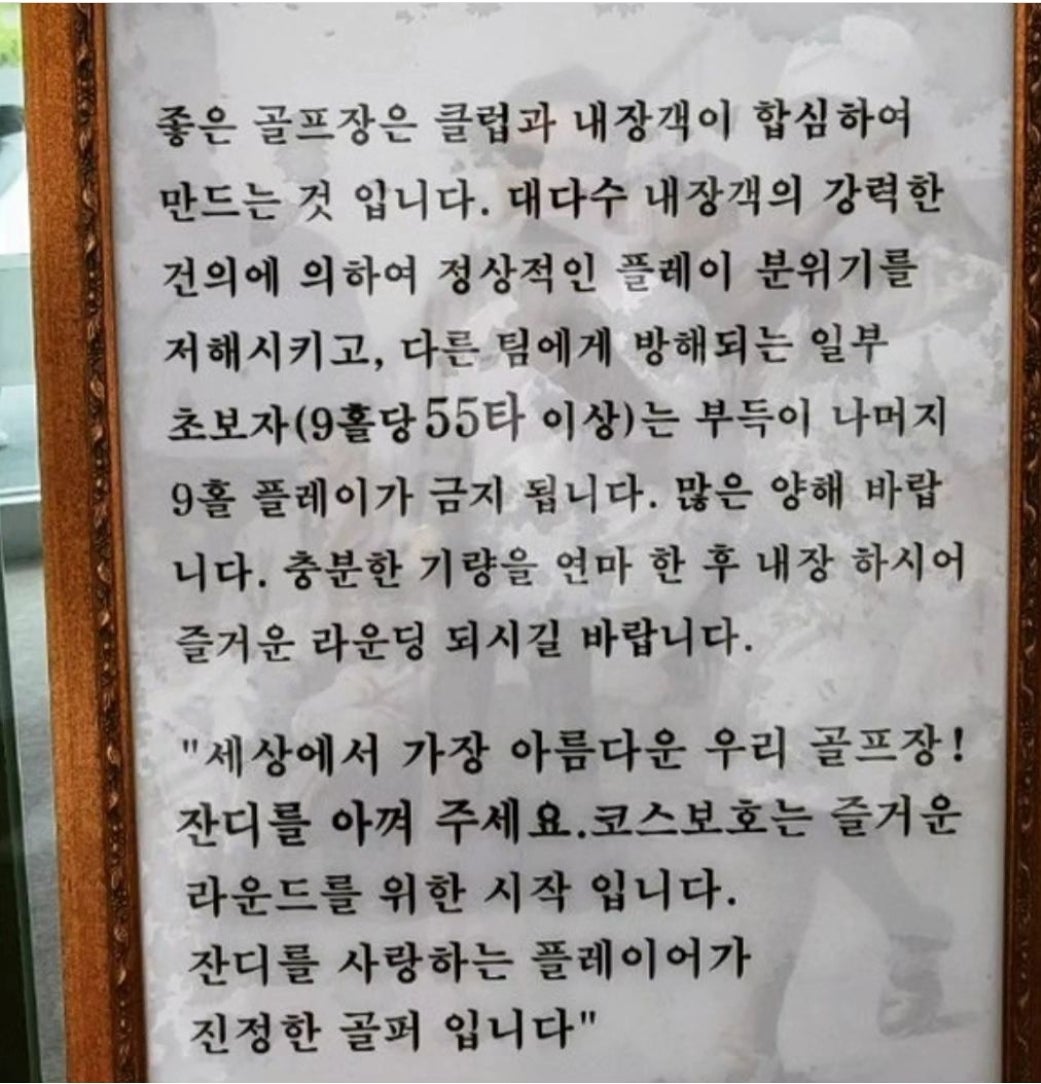 좋은 골프장은 클럽과 내장객이 합심하여
만드는 것 입니다. 대다수 내장객의 강력한
건의에 의하여 정상적인 플레이 분위기를
저해시키고, 다른 팀에게 방해되는 일부
초보자(9홀당 55타 이상)는 부득이 나머지
9홀 플레이가 금지 됩니다. 많은 양해 바랍
니다. 충분한 기량을 연마 한 후 내장 하시어
즐거운 라운딩 되시길 바랍니다.
"세상에서 가장 아름다운 우리 골프장!
잔디를 아껴 주세요.코스보호는 즐거운
라운드를 위한 시작 입니다.
잔디를 사랑하는 플레이어가
진정한 골퍼 입니다"